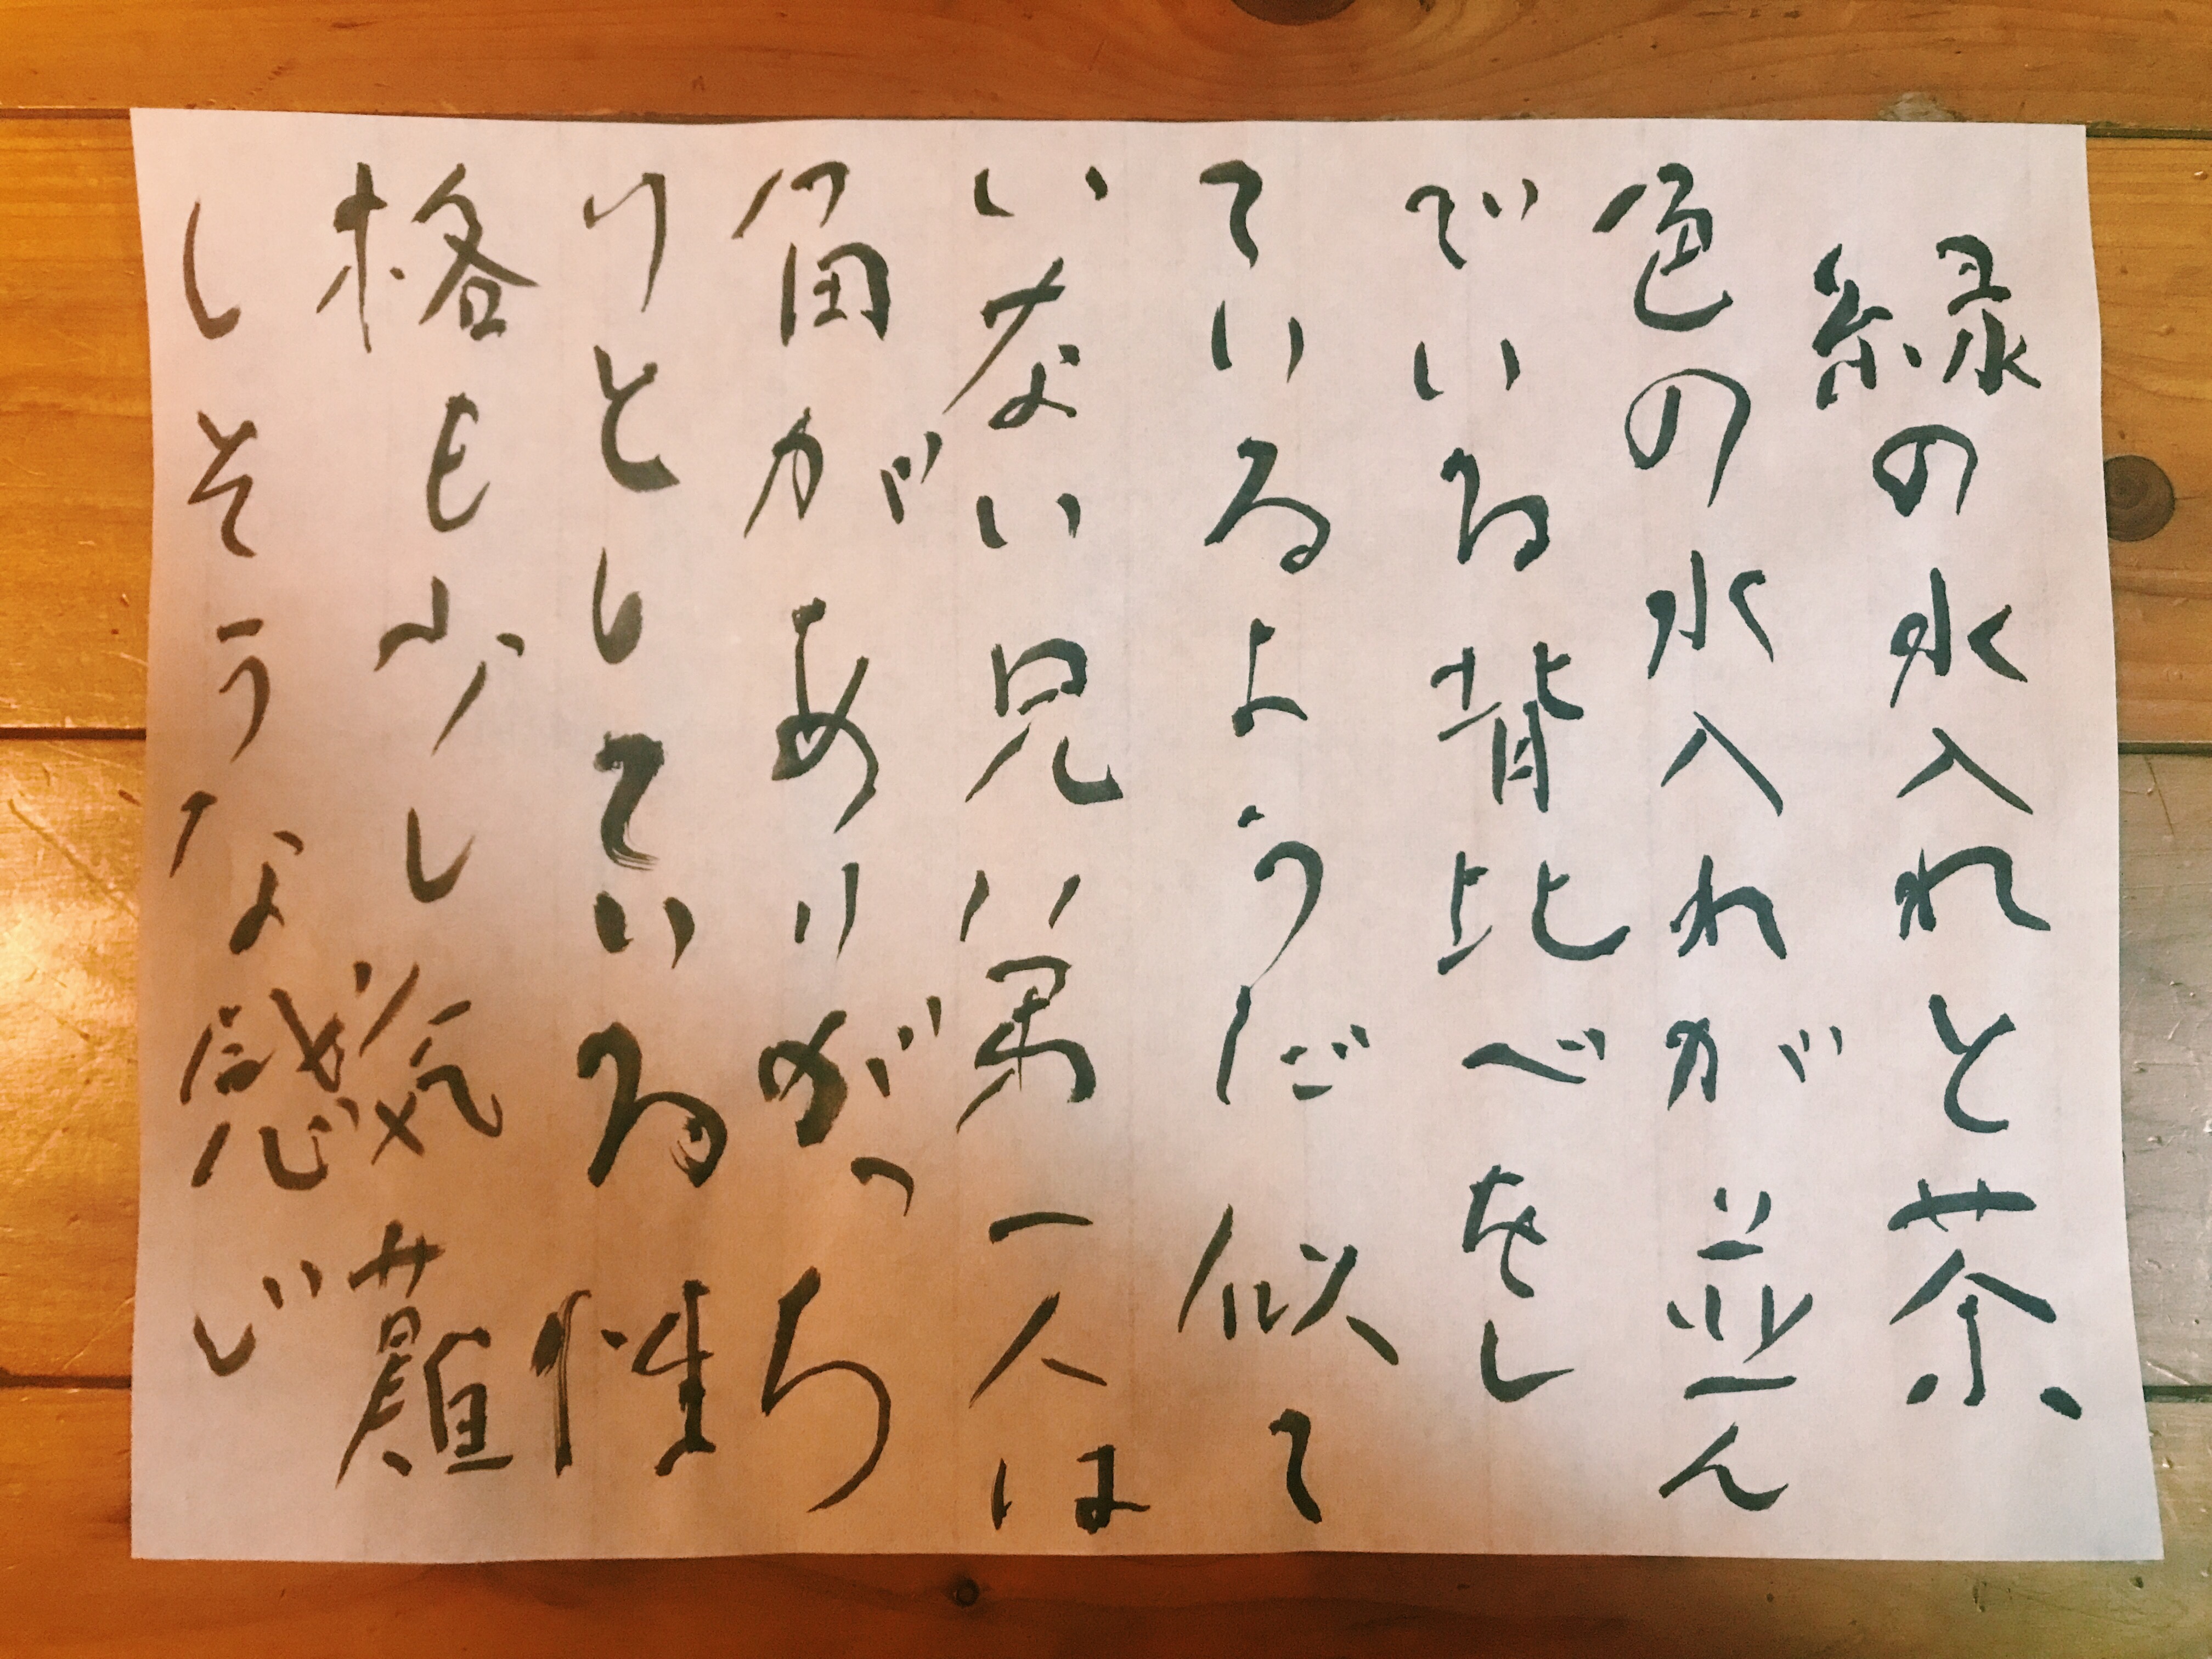 緑の水入れと茶
色の水入れが並ん
でいる背比べをし
ているようだ 似て
いない兄弟 一人は
角がありがっち
りとしている 性
格も少し気難
しそうな感じ